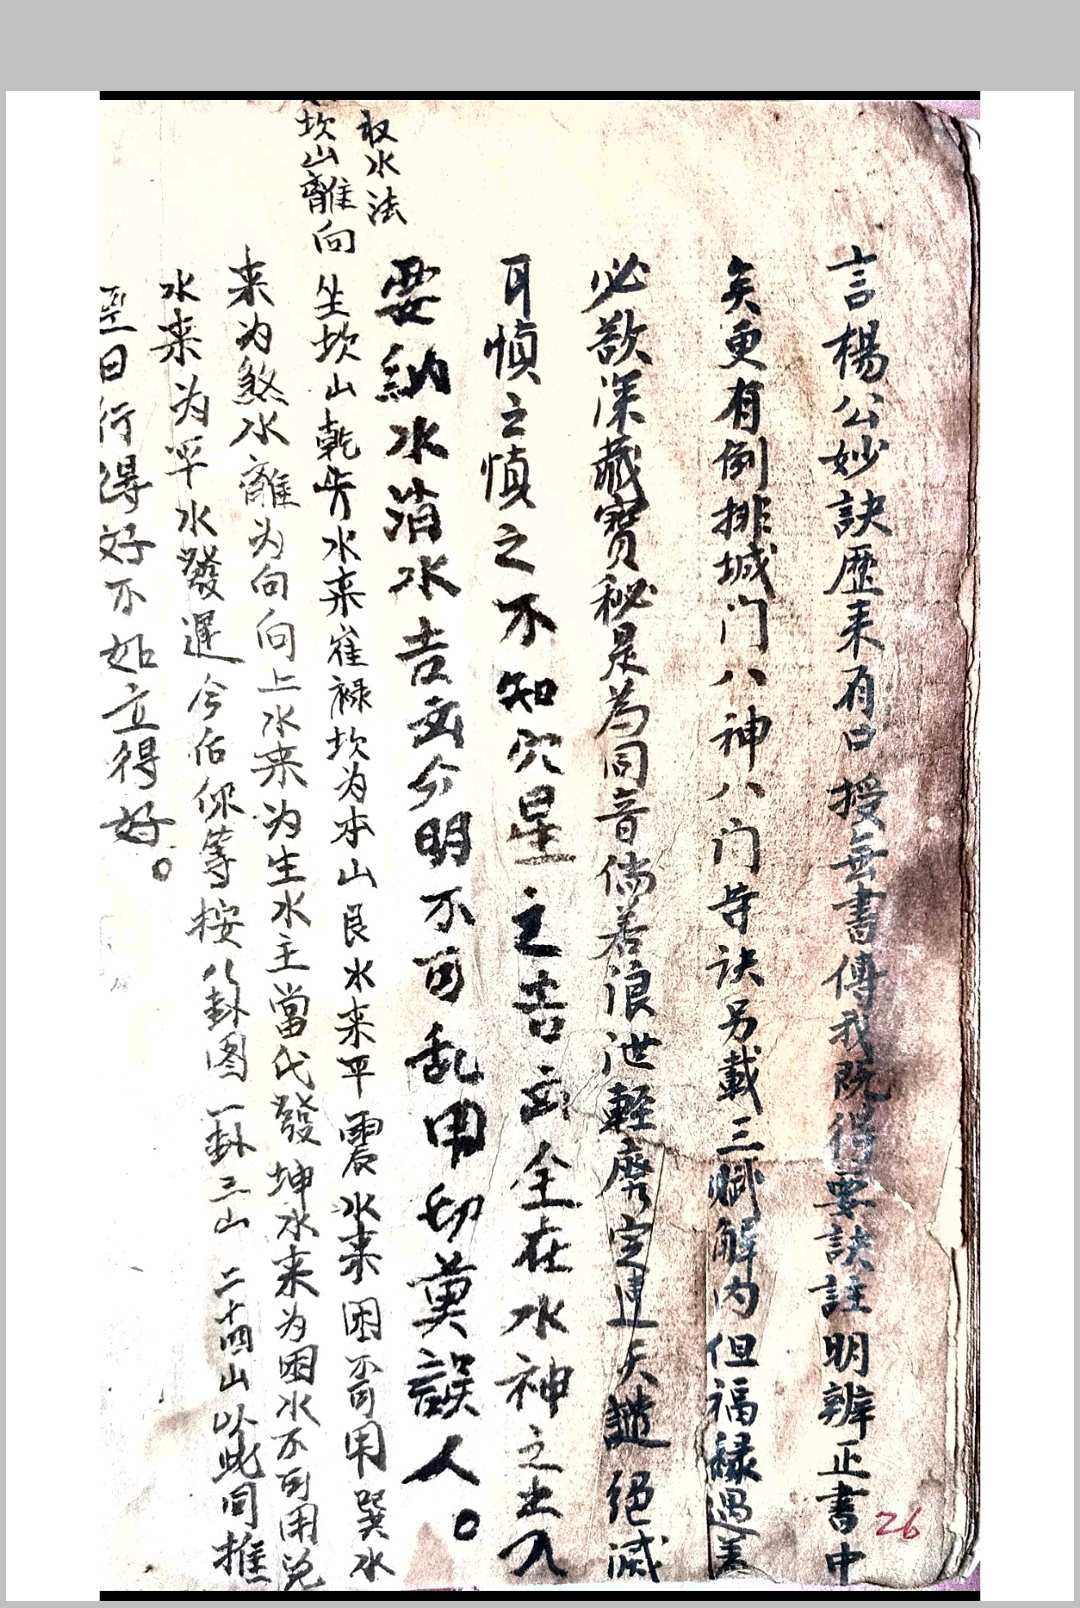 言楊公妙訣歷来有口授無書傳我既得要訣註明辨正書中
矣更有例排城门八神八门等诀另載三賦解内但福禄遇善
必敬深藏寳秘是為同音倘若浪泄輕膺定遭天譴絕滅
耳慎之慎之不知穴星之吉凶全在水神之出入
要納水消水吉凶分明不可乱用切莫誤人。
取水法
坎山離向
坐坎山乾方水来崔禄坎为本山艮水来平震水来困不可用巽水
来为煞水離为向向上水来为生水主當代發坤水来为困水不可用兌
水来为平水發遲今后你等按八卦图一卦三山二十四山以此同推
坐曰行得好不如立得好。
26